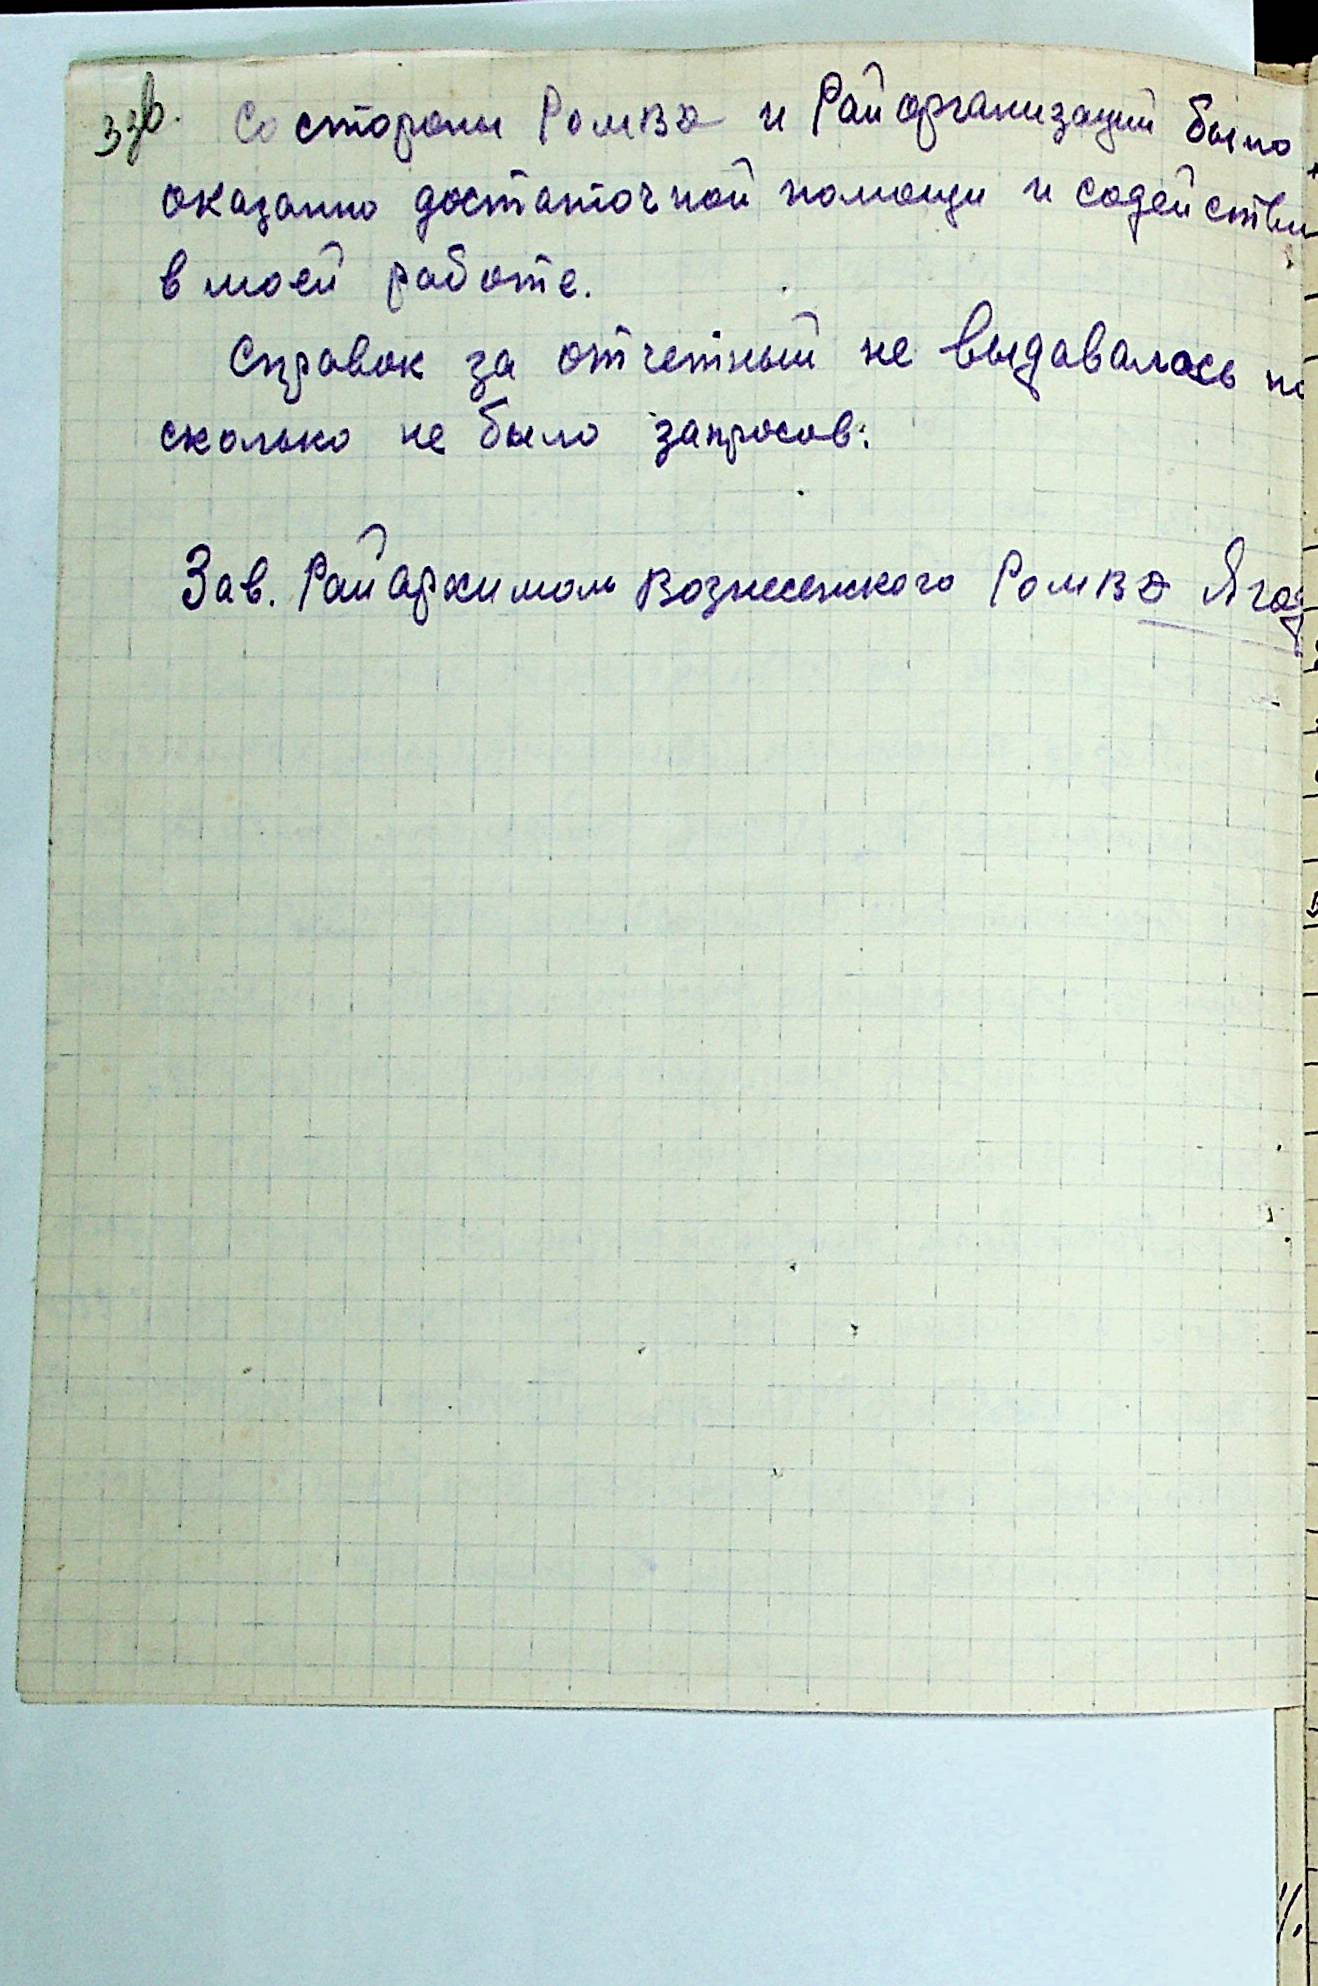 33в. Со стороны РоМВД и Райорганизаций было
оказанно достаточной помощи и содействи
в моей работе.
Справок за отчетный не выдавалось по
сколько не было запросов:
Зав. Райархивом Вознесенского РоМВД Ягод